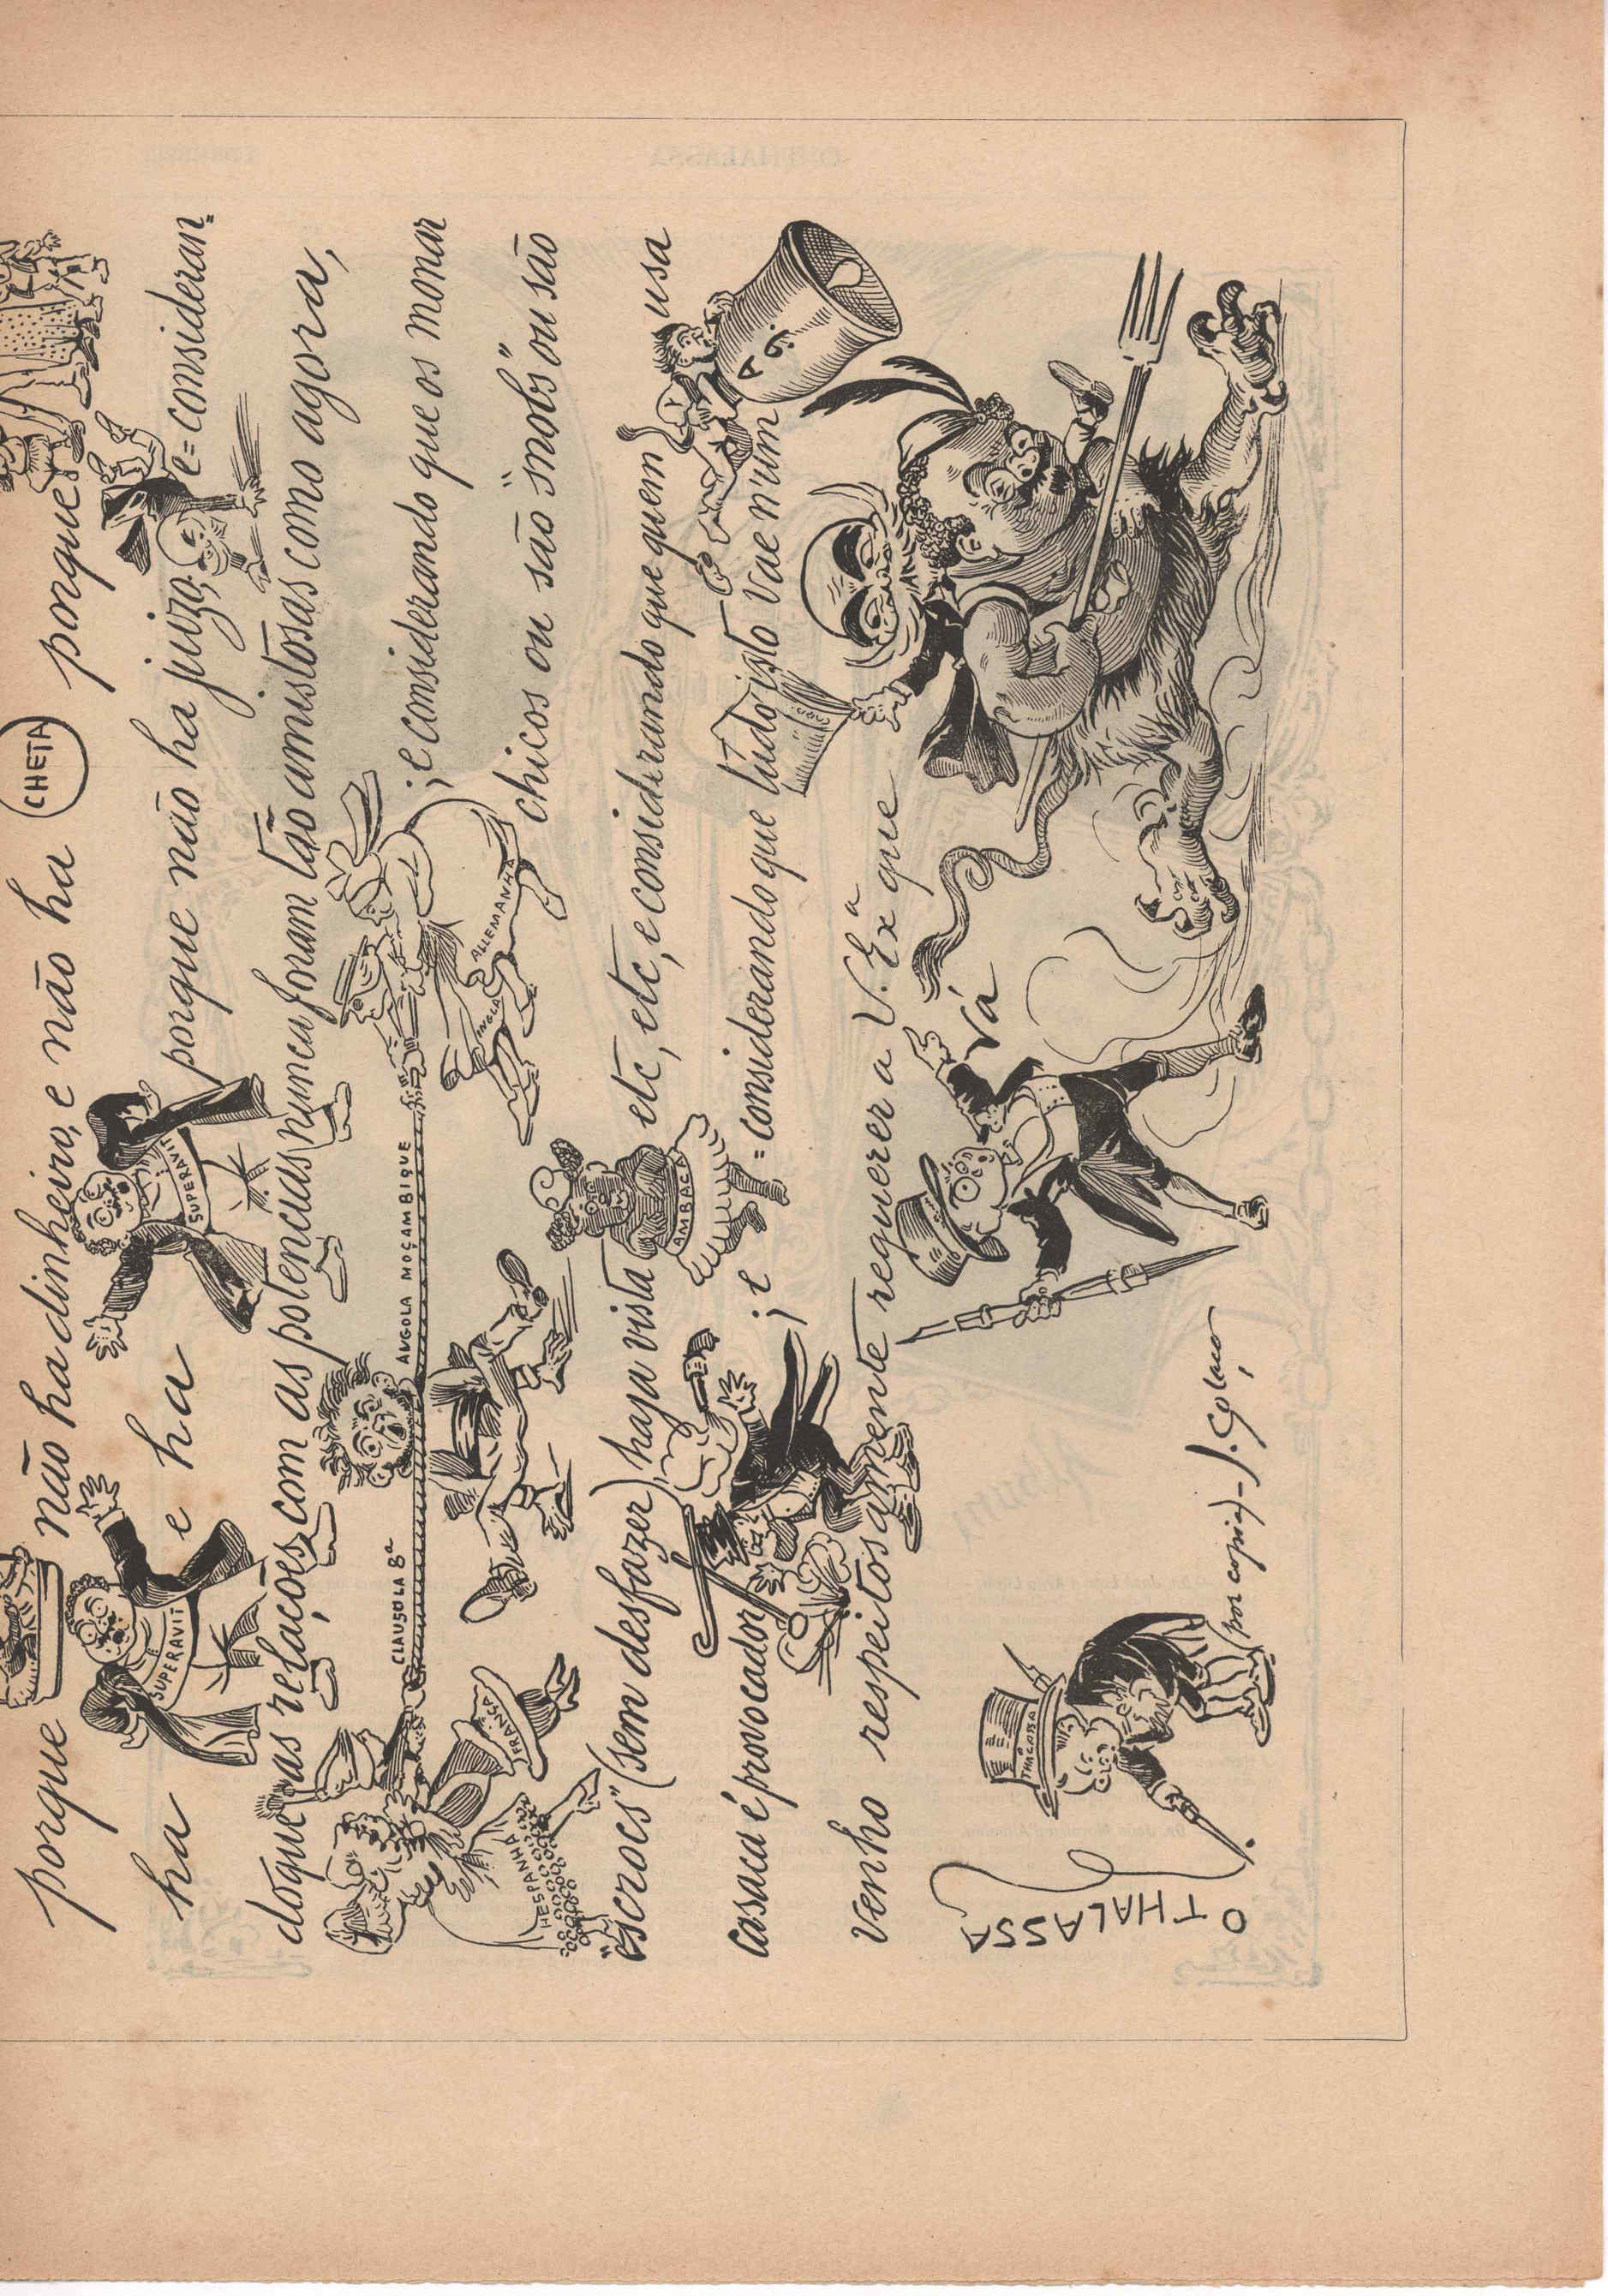 porque não ha dinheiro, e não ha CHETA porque
ha e ha porque não ha juizo, e = consideran=
SUPERAVIT
SUPERAVIT
do que as relações com as potencias nunca foram tão amistosas como agora,
CLAUSULA 8ª
ANGOLA MOÇAMBIQUE
; e considerando que os monar
chicos ou são "snobs" ou são
HESPANHA
FRANÇA
INGLA
ALLEMANHA
"escrocs" (sem desfazer) haja vista etc, etc, e considerando que quem usa
AMBACA
casaca é provocador ; e = considerando que tudo isto vae n'um
A 9.
venho respeitosamente requerer a V. Exª que
Vá
O THALASSA
THALASSA
(por copia) - J. Colaço